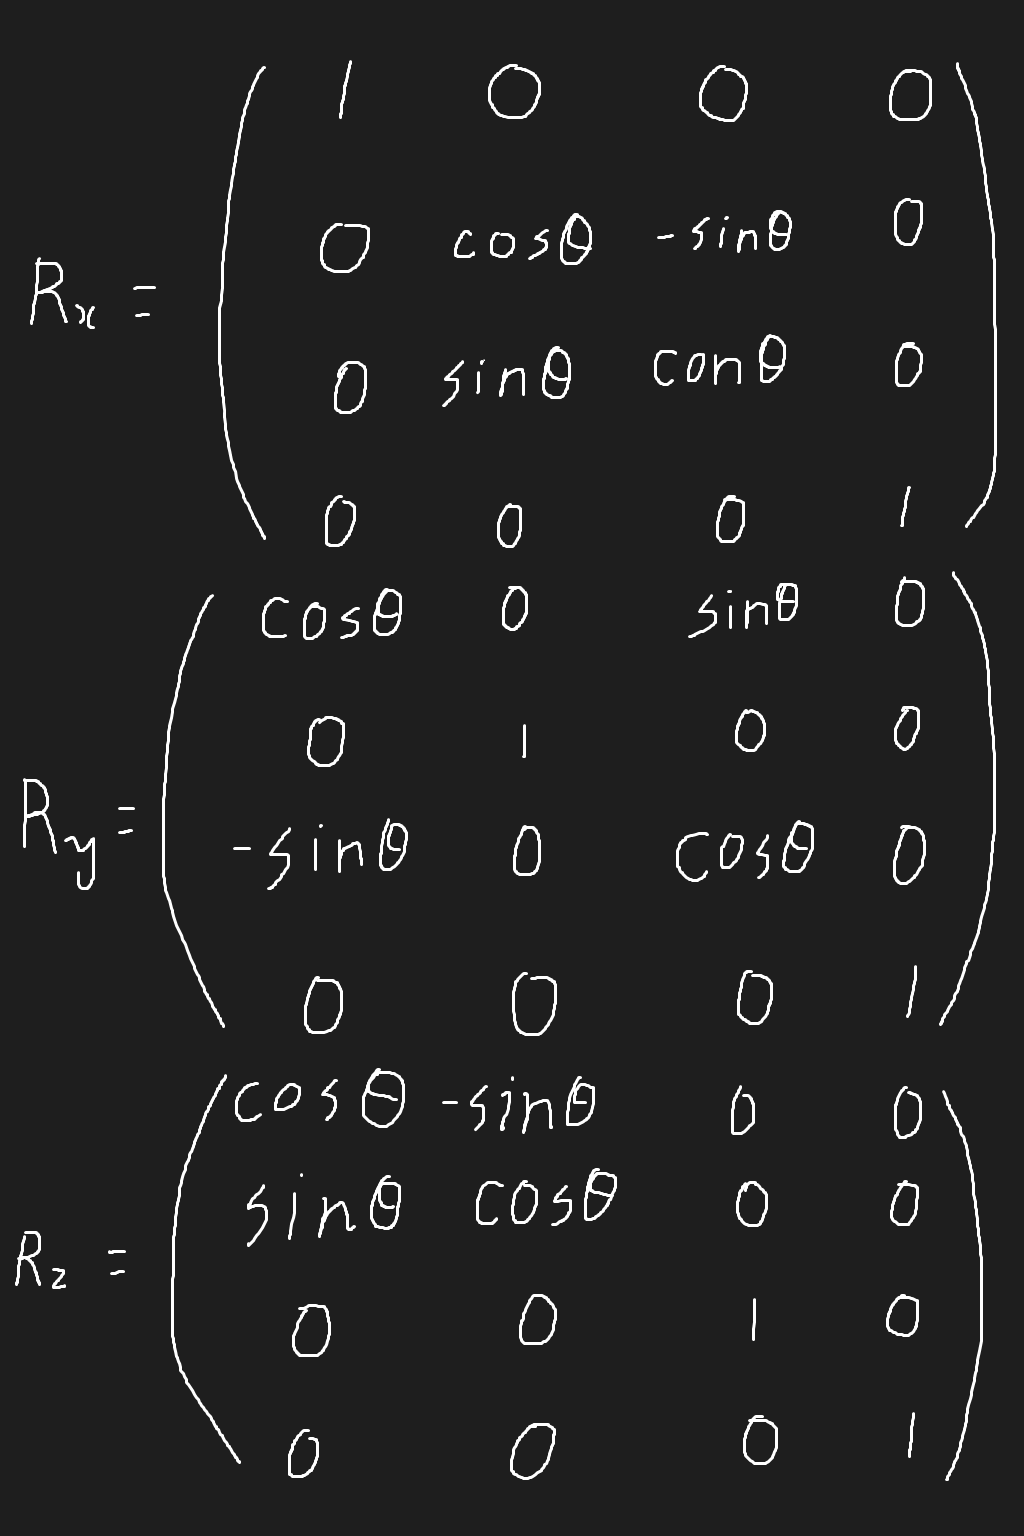 1 0 0 0
0 cosθ -sinθ 0
Rx =
0 sinθ conθ 0
0 0 0 1
cosθ 0 sinθ 0
0 1 0 0
Ry =
-sinθ 0 cosθ 0
0 0 0 1
cosθ -sinθ 0 0
sinθ cosθ 0 0
Rz =
0 0 1 0
0 0 0 1